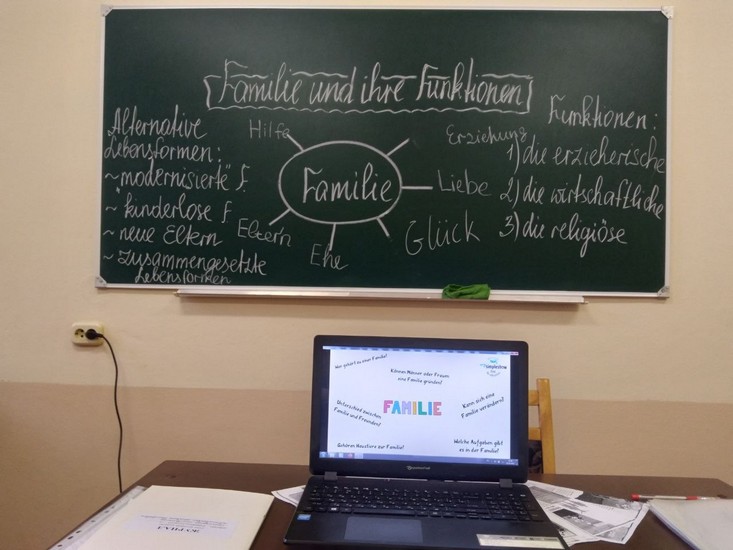 Familie und ihre Funktionen
Alternative
Lebensformen:
~ „modernisierte" F.
~ "kinderlose F
~ neue Eltern
~ zusammengesetzte
Lebensformen
Hilfe
Erziehung
Familie
Liebe
Eltern
Ehe
Glück
Funktionen:
1) die erzieherische
2) die wirtschaftliche
3) die religiöse
Wer gehört zu einer Familie?
Können Männer oder Frauen
eine Familie gründen?
Unterschied zwischen
Familie und Freunden?
FAMILIE
Kann sich eine
Familie verändern?
Gehören Haustiere zur Familie?
Welche Aufgaben gibt
es in der Familie?
ЖУРНАЛ